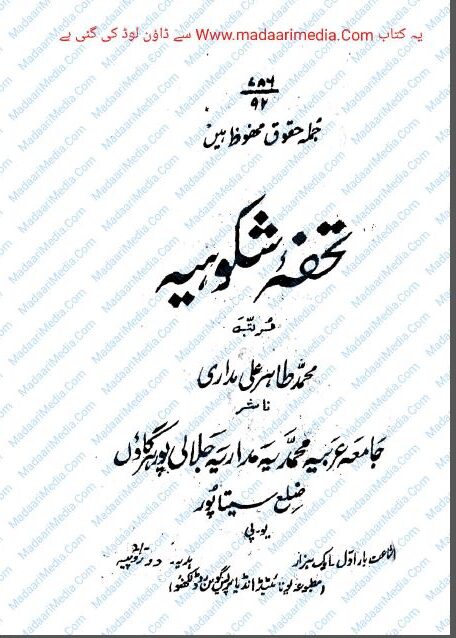 یہ کتاب Www.madaarimedia.Com سے ڈاؤن لوڈ کی گئی ہے
۷۸۶
۹۲
جملہ حقوق محفوظ ہیں
تحفۂ شکوہیہ
مرتبہ
محمد طاہر علی مداری
ناشر
جامعہ عربیہ محمدیہ مداریہ جلالی پور ہرگاؤں
ضلع سیتاپور
یو۔پی
اشاعت بار اول۔ ایک ہزار ہدیہ۔ دو روپیہ
(مطبوعہ یونائیٹڈ انڈیا پریس لکھنؤ)
MadaariMedia.Com